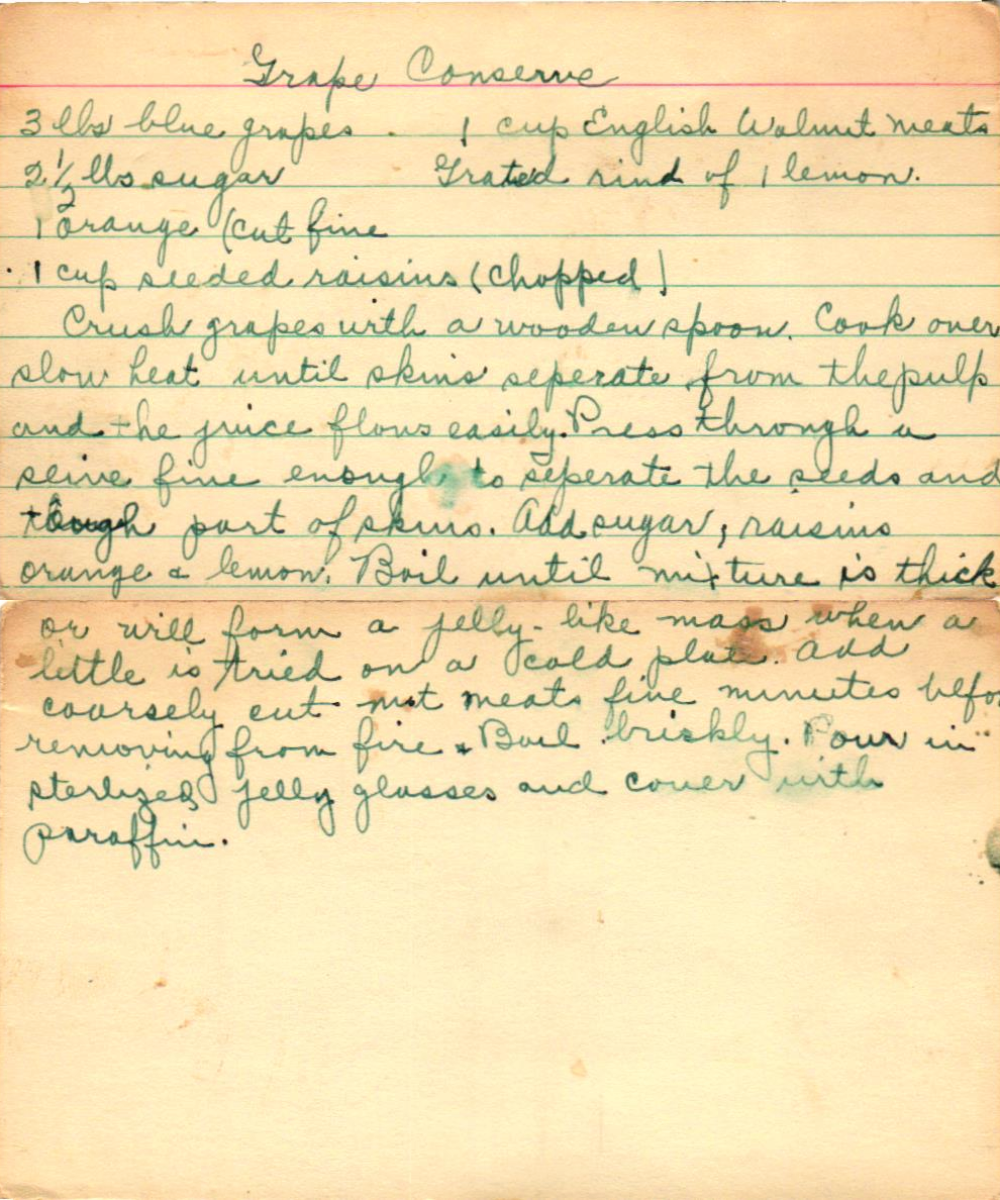 Grape Conserve
3 lbs blue grapes. 1 cup English Walnut meats
2 1/2 lbs sugar Grated rind of 1 lemon.
1 orange (cut fine
1 cup seeded raisins (chopped)
Crush grapes with a wooden spoon. Cook over
slow heat until skins seperate from the pulp
and the juice flows easily. Press through a
seive fine enough to seperate the seeds and
tough part of skins. Add sugar, raisins
orange & lemon. Boil until mixture is thick
or will form a jelly-like mass when a
little is tried on a cold plate. Add
coarsely cut nut meats five minutes befo
removing from fire & Boil briskly. Pour in
sterlized jelly glasses and cover with
paraffin.